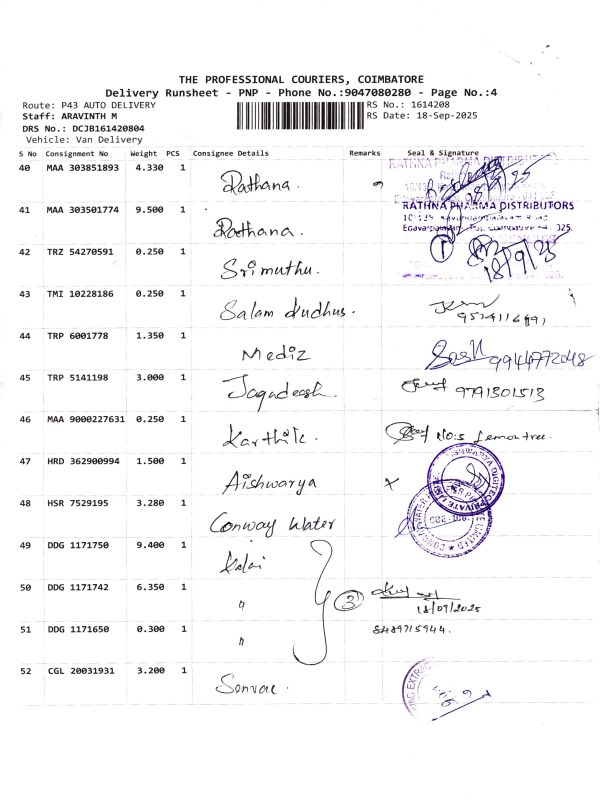 THE PROFESSIONAL COURIERS, COIMBATORE
Delivery Runsheet - PNP - Phone No.:9047080280 - Page No.:4
Route: P43 AUTO DELIVERY RS No.: 1614208
Staff: ARAVINTH M RS Date: 18-Sep-2025
DRS No.: DCJB161420804
Vehicle: Van Delivery
S No Consignment No Weight PCS Consignee Details Remarks Seal & Signature
40 MAA 303851893 4.330 1 Rathana.
41 MAA 303501774 9.500 1 Rathana. RATHNA PHARMA DISTRIBUTORS
42 TRZ 54270591 0.250 1 Srimuthu. 18/9/25
43 TMI 10228186 0.250 1 Salam dudhus.
44 TRP 6001778 1.350 1 Mediz 9944772048
45 TRP 5141198 3.000 1 Jagadeesh. 9791301513
46 MAA 9000227631 0.250 1 Karthik. NO:5 Lemontree.
47 HRD 362900994 1.500 1 Aishwarya
48 HSR 7529195 3.280 1 Conway Water
49 DDG 1171750 9.400 1 Kalai
50 DDG 1171742 6.350 1 〃 3 18/09/2025
51 DDG 1171650 0.300 1 〃 8489715944.
52 CGL 20031931 3.200 1